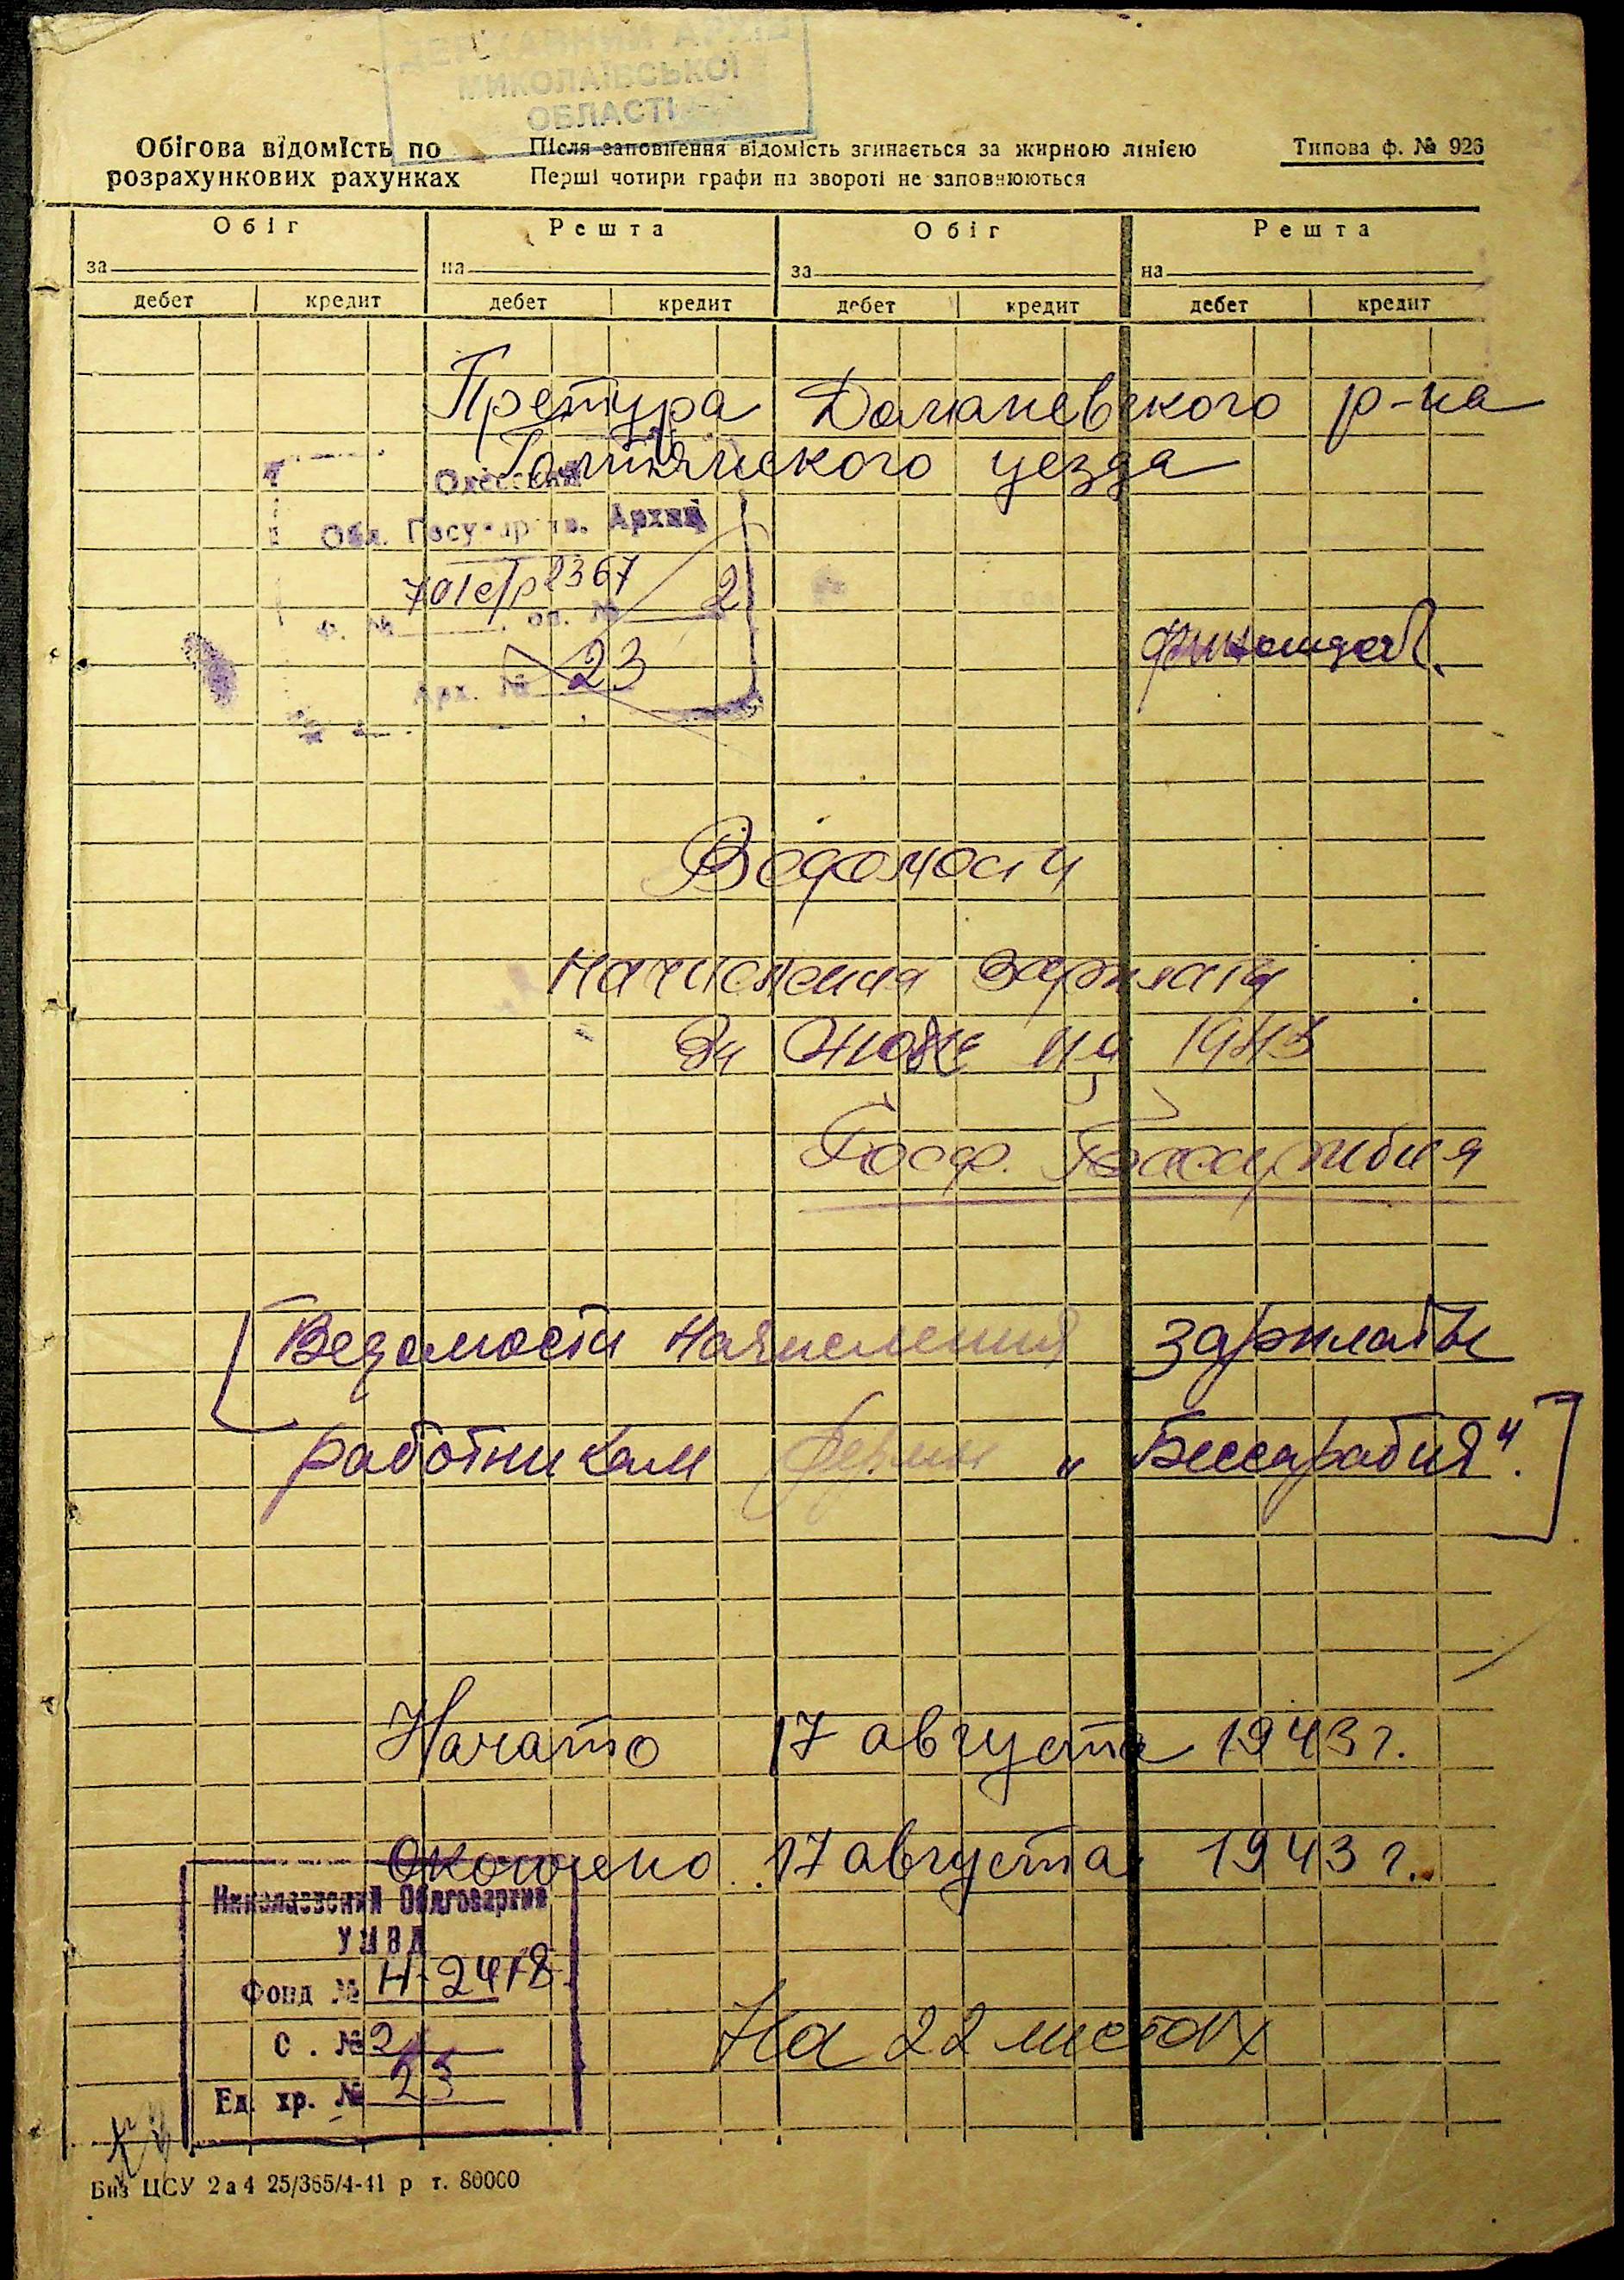 ДЕРЖАВНИЙ АРХІВ
МИКОЛАЇВСЬКОЇ
ОБЛАСТІ
Обігова відомість по
розрахункових рахунках
Після заповнення відомість згинається за жирною лінією
Перші чотири графи на звороті не заповнюються
Типова ф. № 926
Обіг Решта Обіг Решта
за на за на
дебет кредит дебет кредит дебет кредит дебет кредит
Претура Доманевского р-на
Голтянского уезда
Одесский
Обл. Государств. Архив
701с/р 2367
ф. № оп. № 2
Арх. № 23
Ведомости
начисления зарплаты
за 1943
Госф. Бессарабия
[Ведомости начисления зарплаты
работникам фермы „Бессарабия".]
Начато 17 августа 1943 г.
Окончено 17 августа 1943 г.
Николаевский Облгосархив
УМВД
Фонд № Н-2418
О . № 2
Ед. хр. № 23
На 22 листах
Биз ЦСУ 2а4 25/365/4-41 р т. 80000